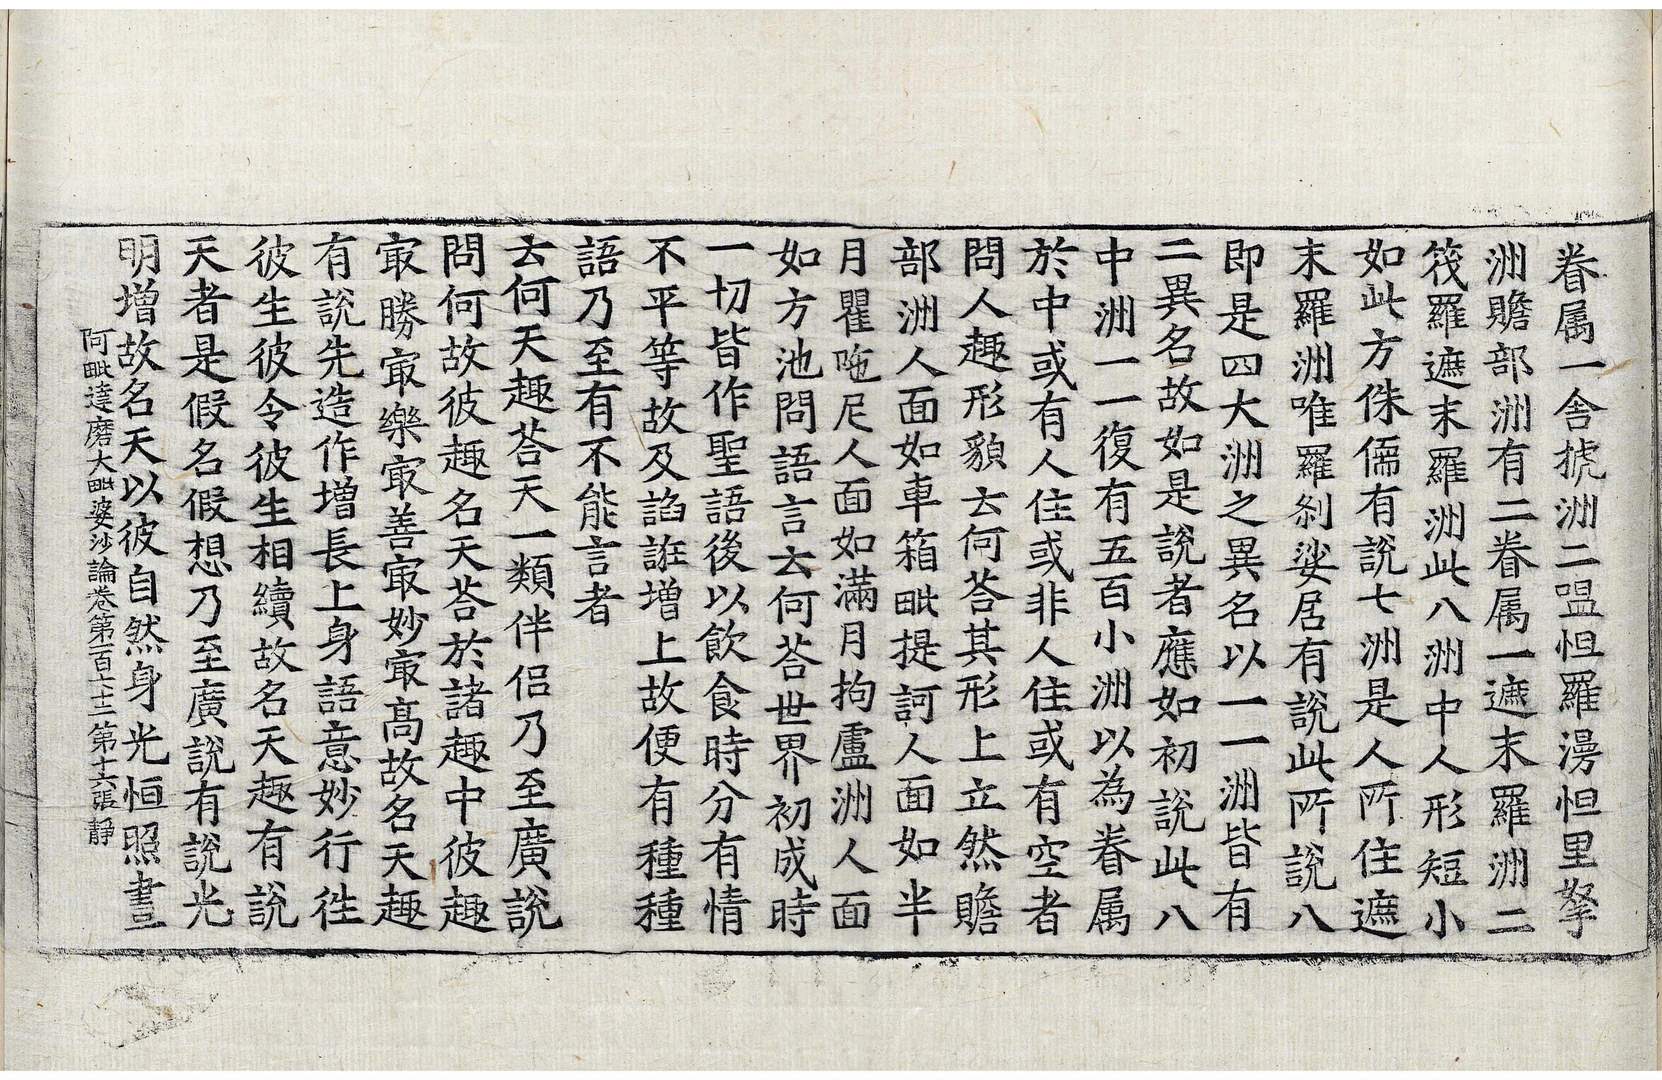 眷属一舍搋洲二嗢怛羅漫怛里拏
洲贍部洲有二眷属一遮末羅洲二
筏羅遮末羅洲此八洲中人形短小
如此方侏儒有說七洲是人所住遮
末羅洲唯羅剎娑居有說此所說八
即是四大洲之異名以一一洲皆有
二異名故如是說者應如初說此八
中洲一一復有五百小洲以為眷属
於中或有人住或非人住或有空者
問人趣形貌云何荅其形上立然贍
部洲人面如車箱毗提訶人面如半
月瞿陁尼人面如滿月拘盧洲人面
如方池問語言云何荅世界初成時
一切皆作聖語後以飲食時分有情
不平等故及諂誑增上故便有種種
語乃至有不能言者
云何天趣荅天一類伴侣乃至廣說
問何故彼趣名天荅於諸趣中彼趣
冣勝冣樂冣善冣妙冣高故名天趣
有說先造作增長上身語意妙行徃
彼生彼令彼生相續故名天趣有說
天者是假名假想乃至廣說有說光
明增故名天以彼自然身光恒照晝
阿毗達磨大毗婆沙論卷第一百七十二 第十六張 靜